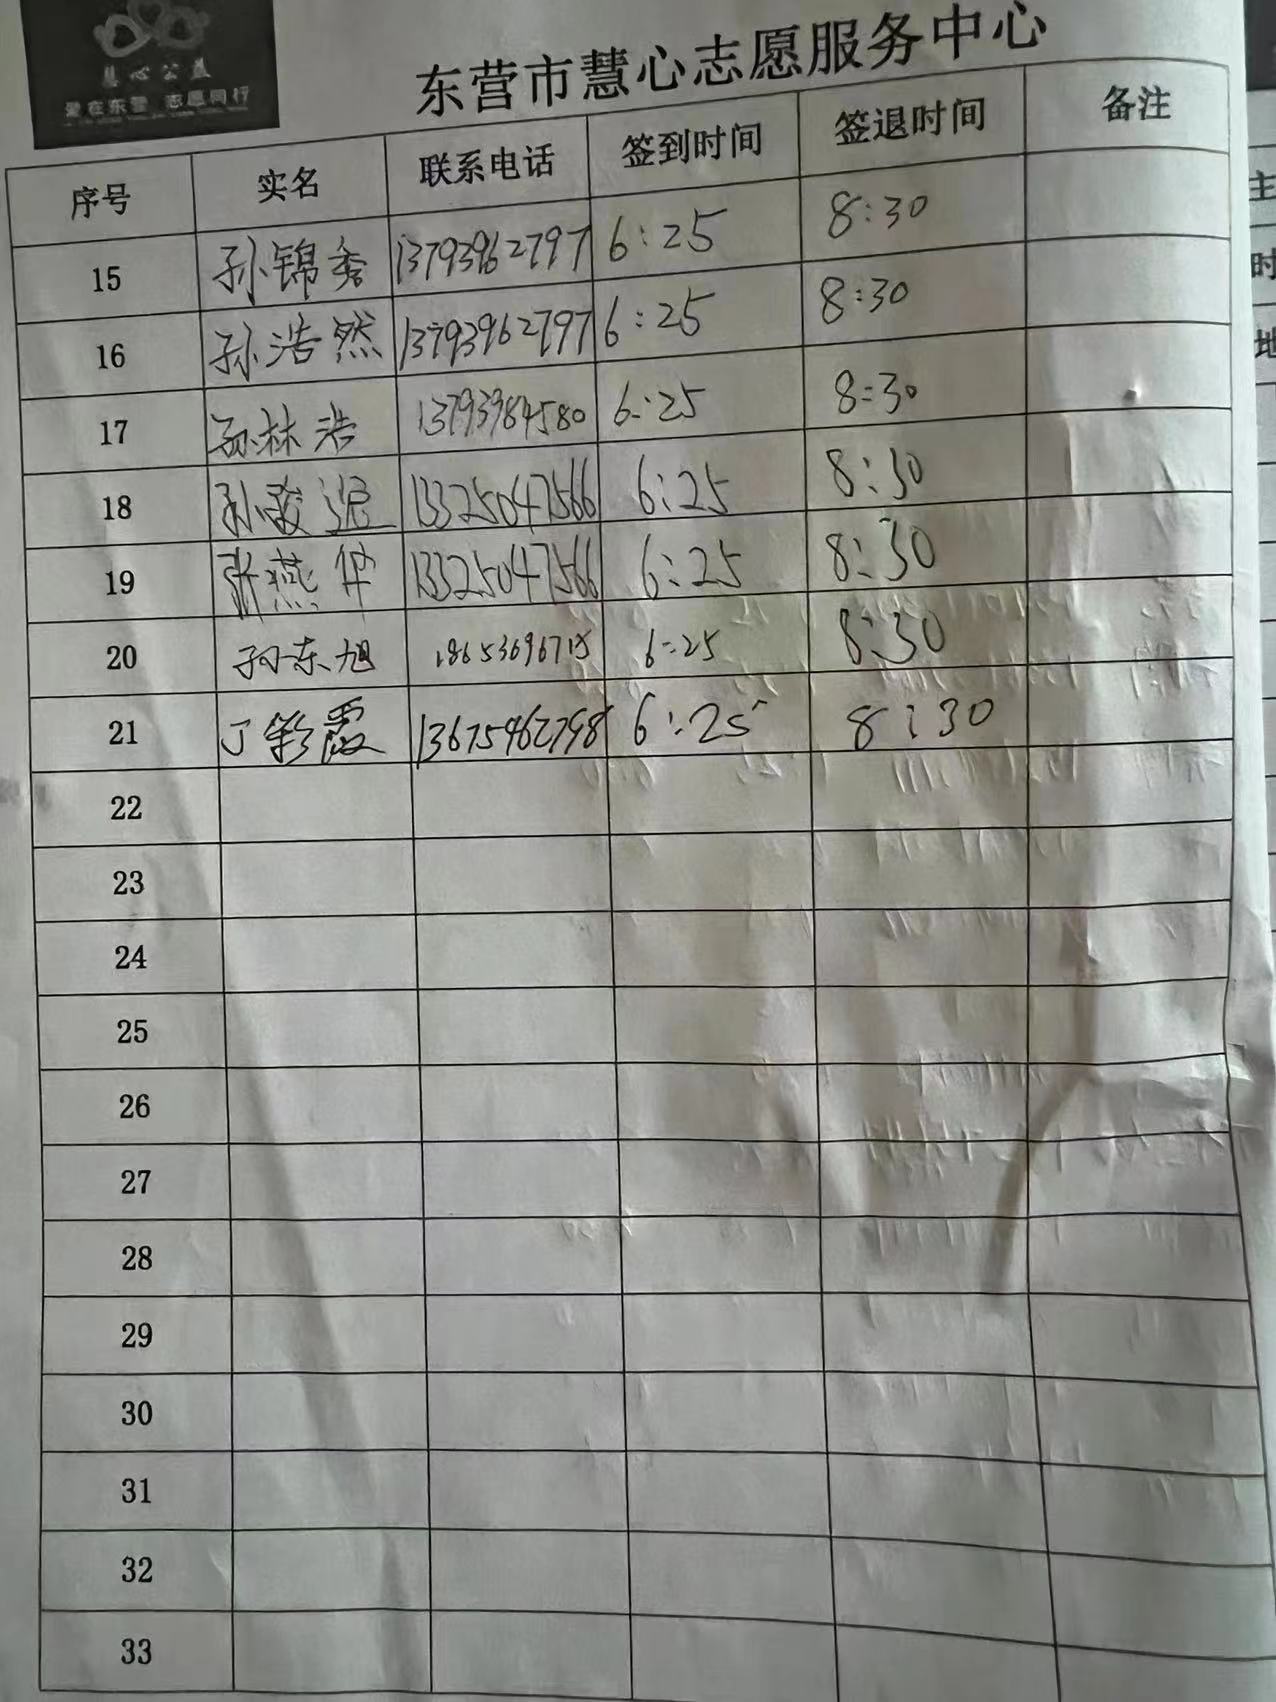 慧心公益
爱在东营 志愿同行
东营市慧心志愿服务中心
序号 实名 联系电话 签到时间 签退时间 备注
15 孙锦秀 13793962797 6:25 8:30
16 孙浩然 13793962797 6:25 8:30
17 孙林浩 13793984580 6:25 8:30
18 孙骏 13325047566 6:25 8:30
19 张燕 13325047566 6:25 8:30
20 孙东旭 18653696715 6:25 8:30
21 丁彩霞 13675462798 6:25 8:30
22
23
24
25
26
27
28
29
30
31
32
33
主
时
地